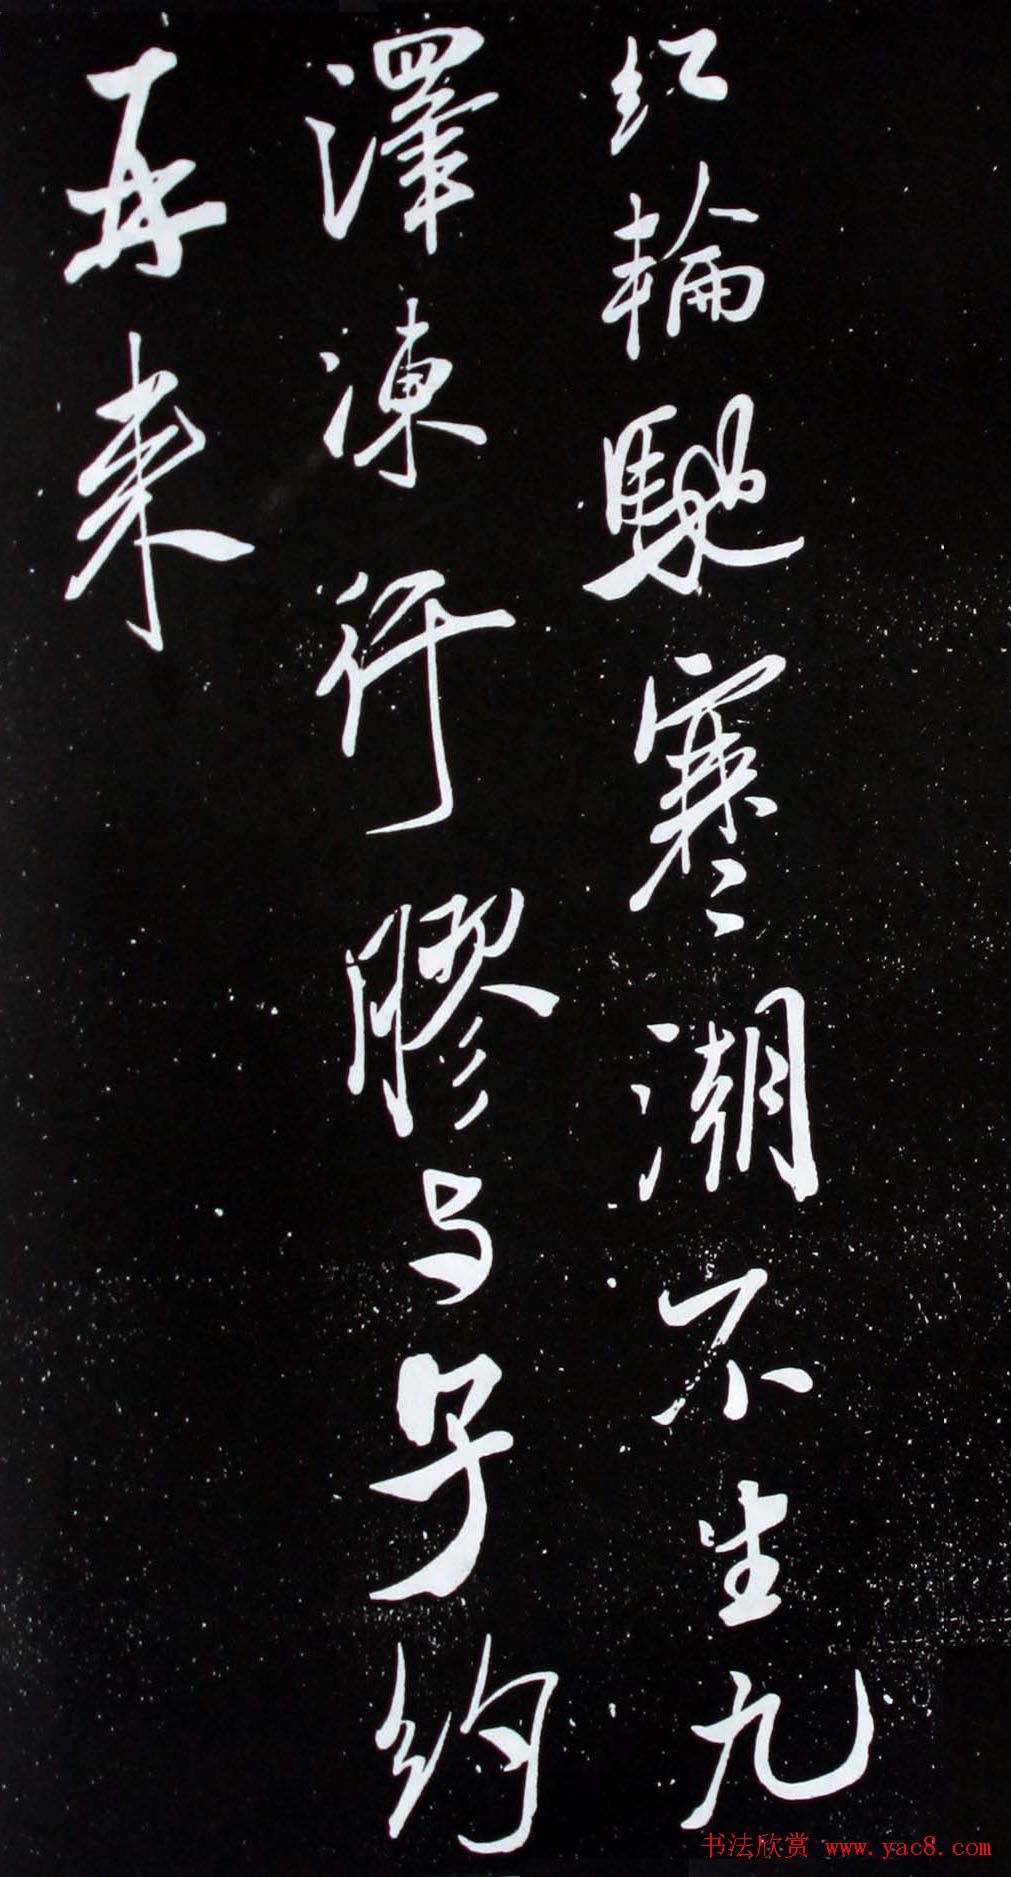 紅輪馳寒潮不生九
澤凍行膠与子約
再來
书法欣赏 www.yac8.com